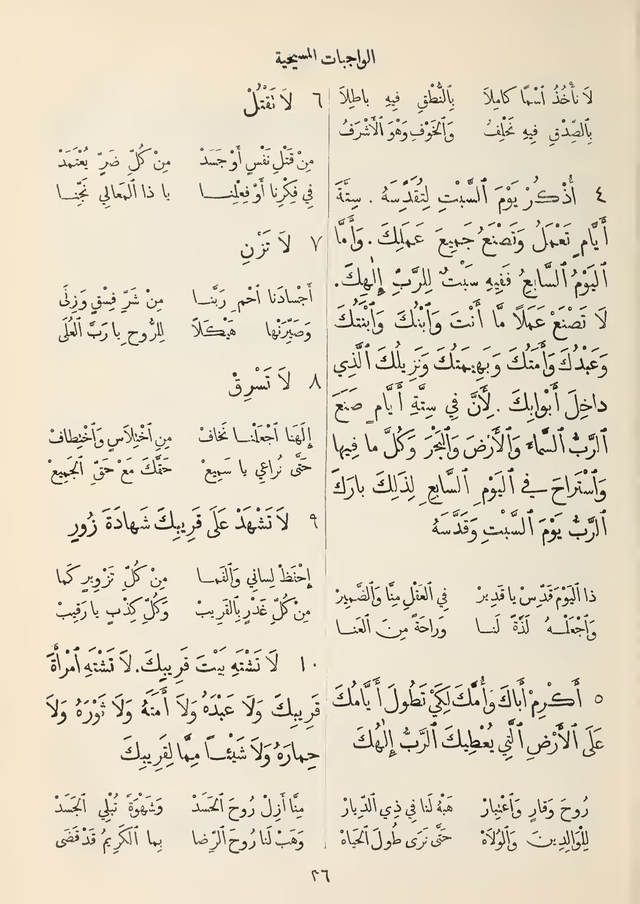 الواجبات المسيحية
لَا نَأْخُذُ ٱسْمًا كامِلَا بِٱلنُّطْقِ فِيهِ باطِلَا
بِٱلصِّدْقِ فِيهِ نَحْلِفُ وَٱلخَوْفِ وَهْوَ ٱلْأَشْرَفُ
٤ أُذْكُرْ يَوْمَ ٱلسَّبْتِ لِتُقَدِّسَهُ . سِتَّةَ
أَيَّامٍ تَعْمَلُ وَتَصْنَعُ جَمِيعَ عَمَلِكَ . وَأَمَّا
ٱلْيَوْمُ ٱلسَّابِعُ فَفِيهِ سَبْتٌ لِلرَّبِّ إِلٰهِكَ.
لَا تَصْنَعْ عَمَلًا مَّا أَنْتَ وَٱبْنُكَ وَٱبْنَتُكَ
وَعَبْدُكَ وَأَمَتُكَ وَبَهِيمَتُكَ وَنَزِيلُكَ ٱلَّذِي
دَاخِلَ أَبْوَابِكَ . لِأَنَّ فِي سِتَّةِ أَيَّامٍ صَنَعَ
ٱلرَّبُّ ٱلسَّمَاءَ وَٱلْأَرْضَ وَٱلْبَحْرَ وَكُلَّ مَا فِيهَا
وَٱسْتَرَاحَ فِي ٱلْيَوْمِ ٱلسَّابِعِ لِذٰلِكَ بارَكَ
ٱلرَّبُّ يَوْمَ ٱلسَّبْتِ وَقَدَّسَهُ
ذا ٱليَوْمَ قَدِّسْ يا قَدِيرْ فِي ٱلعَقْلِ مِنَّا وَٱلضَّمِيرْ
وَٱجْعَلْهُ لَذَّةً لَنا وَراحَةً مِنَ ٱلعَنا
٥ أَكْرِمْ أَبَاكَ وَأُمَّكَ لِكَيْ تَطُولَ أَيَّامُكَ
عَلَى ٱلْأَرْضِ ٱلَّتِي يُعْطِيكَ ٱلرَّبُّ إِلٰهُكَ
رُوحَ وَقارٍ وَٱعْتِبارْ هَبْهُ لَنا فِي ذِي ٱلدِّيارْ
لِلْوَالِدِينَ وَٱلْوُلاَهْ حَتَّى نَرَى طُولَ ٱلحَيَاهْ
٦ لَا تَقْتُلْ
مِنْ قَتْلِ نَفْسٍ أَوْ جَسَدْ مِنْ كُلِّ ضَرٍّ يُعْتَمَدْ
فِي فِكْرِنا أَوْ فِعْلِنا يا ذا ٱلمَعالِي نَجِّنا
٧ لَا تَزْنِ
أَجْسادَنا ٱحْمِ رَبَّنا مِنْ شَرِّ فِسْقٍ وَزِنَى
وَصَيِّرَنْها هَيْكَلَا لِلرُّوحِ يا رَبَّ ٱلعُلَى
٨ لَا تَسْرِقْ
إِلٰهَنا ٱجْعَلْنا نَخافْ مِنِ ٱخْتِلاسٍ وَٱخْتِطافْ
حَتَّى نُراعِي يا سَمِيعْ حَقَّكَ مَعْ حَقِّ ٱلجَمِيعْ
٩ لَا تَشْهَدْ عَلَى قَرِيبِكَ شَهَادَةَ زُورٍ
إِحْفَظْ لِسانِي وَٱلفَما مِنْ كُلِّ تَزْوِيرٍ كَما
مِنْ كُلِّ غَدْرٍ بِٱلقَرِيبْ وَكُلِّ كِذْبٍ يا رَقِيبْ
١٠ لَا تَشْتَهِ بَيْتَ قَرِيبِكَ. لَا تَشْتَهِ ٱمْرَأَةَ
قَرِيبِكَ وَلَا عَبْدَهُ وَلَا أَمَتَهُ وَلَا ثَوْرَهُ وَلَا
حِمارَهُ وَلَا شَيْئًا مِمَّا لِقَرِيبِكَ
مِنَّا أَزِلْ رُوحَ ٱلحَسَدْ وَشَهْوَةً تُبْلِي ٱلجَسَدْ
وَهَبْ لَنا رُوحَ ٱلرِّضا بِما ٱلكَرِيمُ قَدْ قَضَى
٢٦